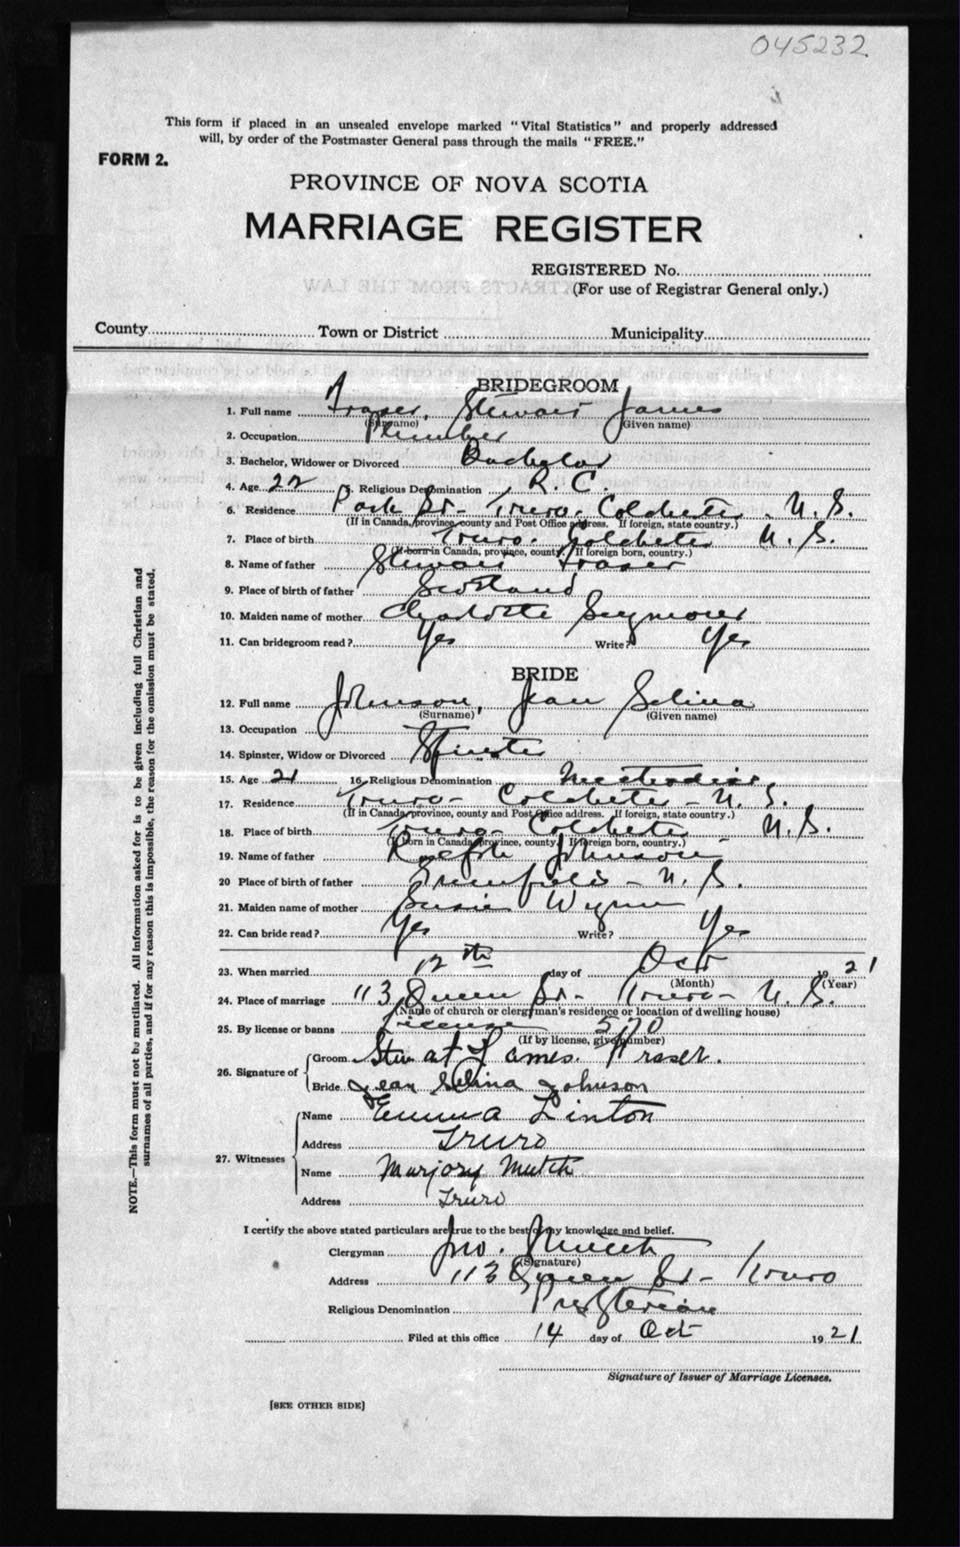 045232
This form if placed in an unsealed envelope marked "Vital Statistics" and properly addressed
will, by order of the Postmaster General pass through the mails "FREE."
FORM 2.
PROVINCE OF NOVA SCOTIA
MARRIAGE REGISTER
REGISTERED No.
(For use of Registrar General only.)
County Town or District Municipality
BRIDEGROOM
1. Full name Fraser, Stewart James
(Surname) (Given name)
2. Occupation Plumber
3. Bachelor, Widower or Divorced Bachelor
4. Age 22 5. Religious Denomination R. C.
6. Residence Park St- Truro. Colchester. N. S.
(If in Canada, province, county and Post Office address. If foreign, state country.)
7. Place of birth Truro. Colchester N. S.
(If born in Canada, province, county. If foreign born, country.)
8. Name of father Stewart Fraser
9. Place of birth of father Scotland
10. Maiden name of mother Charlotte Seymour
11. Can bridegroom read? Yes Write? Yes
BRIDE
12. Full name Johnson, Jean Selina
(Surname) (Given name)
13. Occupation
14. Spinster, Widow or Divorced Spinster
15. Age 21 16. Religious Denomination Methodist
17. Residence Truro- Colchester - N. S.
(If in Canada, province, county and Post Office address. If foreign, state country.)
18. Place of birth Truro- Colchester - N. S.
(If born in Canada, province, county. If foreign born, country.)
19. Name of father Johnson
20 Place of birth of father Greenfield - N. S.
21. Maiden name of mother Susie Wynn
22. Can bride read? Yes Write? Yes
23. When married 12th day of Oct 19 21
(Month) (Year)
24. Place of marriage 113 Queen St- Truro- N. S.
(Name of church or clergyman's residence or location of dwelling house)
25. By license or banns License 570
(If by license, give number)
26. Signature of Groom Stewart James. Fraser.
Bride Jean Selina Johnson
27. Witnesses Name Emma Linton
Address Truro
Name Marjory Mutch
Address Truro
I certify the above stated particulars are true to the best of my knowledge and belief.
Clergyman Jno. Mutch
(Signature)
Address 113 Queen St- Truro
Religious Denomination Presbyterian
Filed at this office 14 day of Oct 1921
Signature of Issuer of Marriage Licenses.
[SEE OTHER SIDE]
NOTE.—This form must not be mutilated. All information asked for is to be given including full Christian and
surnames of all parties, and if for any reason this is impossible, the reason for the omission must be stated.